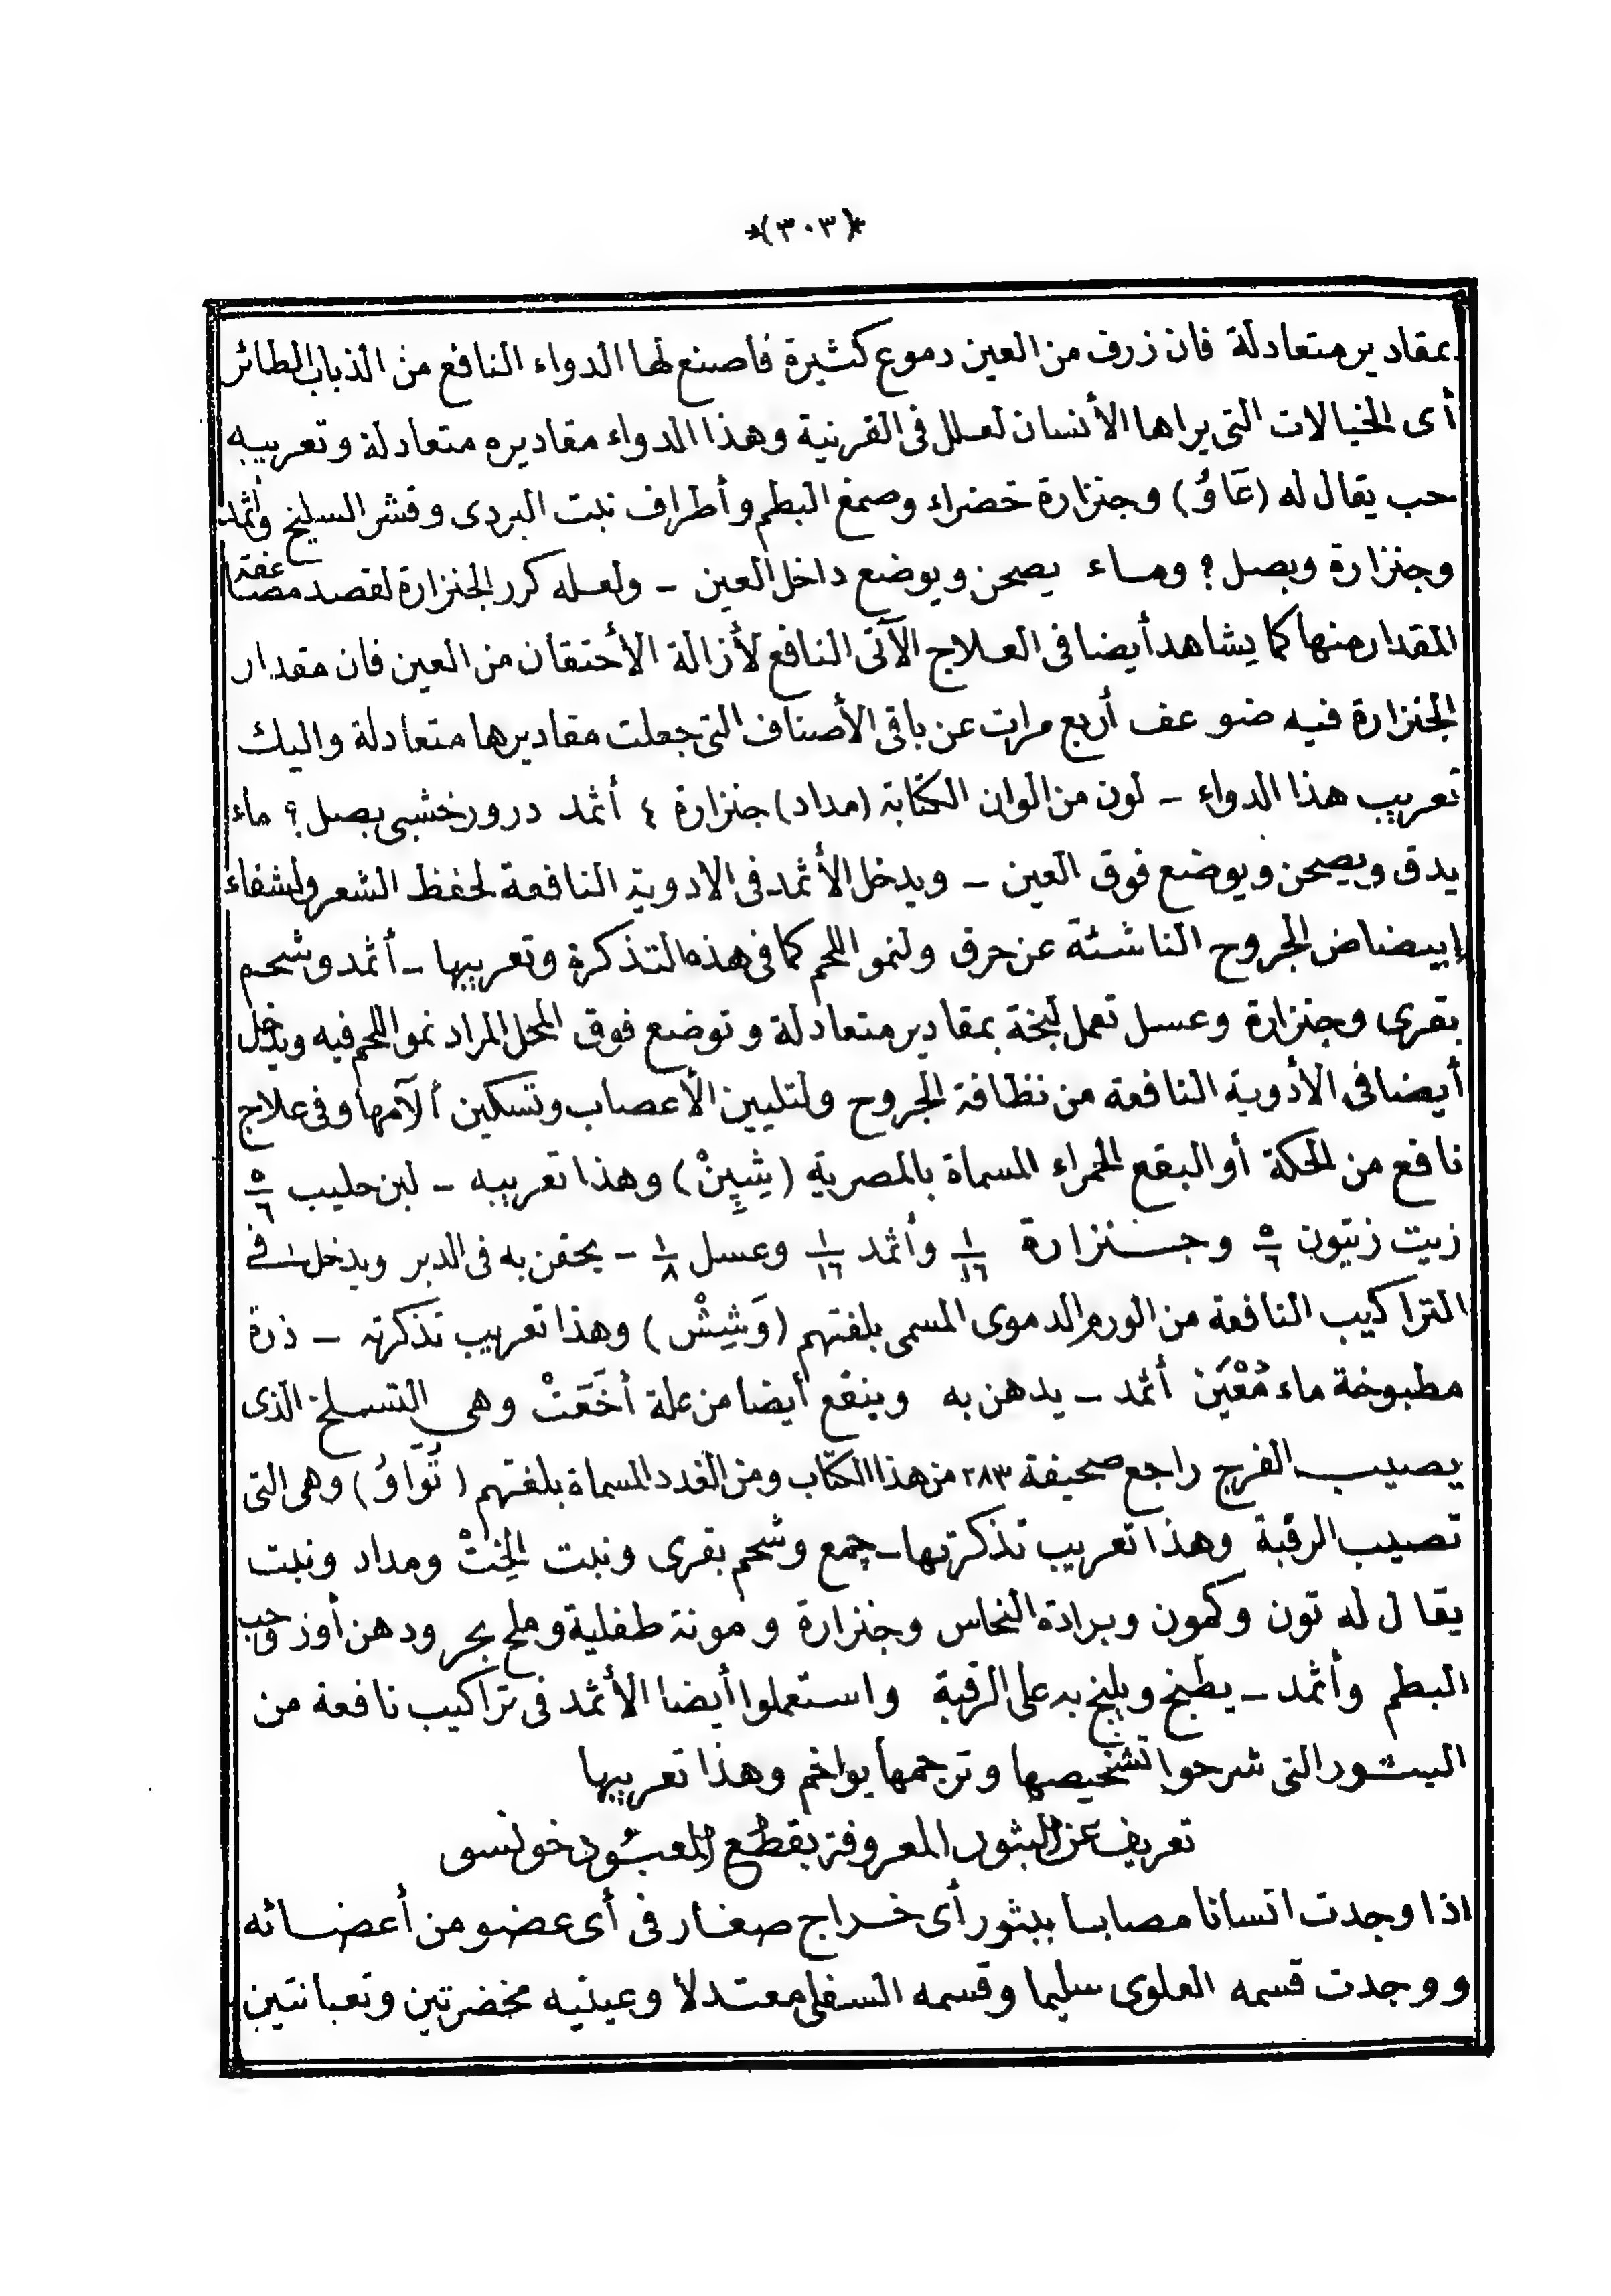 *(٣٠٣)*
بمقادير متعادلة فان زرف من العين دموع كثيرة فاصنع لها الدواء النافع من الذباب الطائر
أى الخيالات التى يراها الأنسان لعلل فى القرنية وهذا الدواء مقاديره متعادلة وتعريبه
حب يقال له (عَاوُ) وجنزارة خضراء وصمغ البطم وأطراف نبت البردى وقشر السليخ وأثمد
وجنزارة وبصل ؟ وماء يصحن ويوضع داخل العين - ولعله كرر الجنزارة لقصد مضاعفة
المقدار منها كما يشاهد أيضا فى العلاج الآتى النافع لأزالة الأحتقان من العين فان مقدار
الجنزارة فيه ضوعف أربع مرات عن باقى الأصناف التى جعلت مقاديرها متعادلة واليك
تعريب هذا الدواء - لون من الوان الكتابة (مداد) جنزارة ٤ أثمد درور خشبى بصل ؟ ماء
يدق ويصحن ويوضع فوق العين - ويدخل الأثمد فى الادوية النافعة لحفظ الشعر ولشفاء
إبيضاض الجروح الناشئة عن حرق ولنمو اللحم كما فى هذه التذكرة وتعريبها - أثمد وشحم
بقرى وجنزارة وعسل تعمل لبخة بمقادير متعادلة وتوضع فوق المحل المراد نمو اللحم فيه ويدخل
أيضا فى الأدوية النافعة من نظافة الجروح ولتليين الأعصاب وتسكين ألآمها وفى علاج
نافع من الحكة أو البقع الحمراء المسماة بالمصرية (يثِپِنْ) وهذا تعريبه - لبن حليب ٥/٦
زيت زيتون ٥/٦ وجنزارة ١/١٦ وأثمد ١/١٦ وعسل ١/٨ - يحقن به فى الدبر ويدخل فى
التراكيب النافعة من الورم الدموى المسمى بلغتهم (وَشِيشْ) وهذا تعريب تذكرته - ذرة
مطبوخة ماء مُعْيَن أثمد - يدهن به وينفع أيضا من علة أخَعَتْ وهى التسلخ الذى
يصيب الفرج راجع صحيفة ٢٨٣ من هذا الكتاب ومن الغدد المسماة بلغتهم (ثَوَاوُ) وهى التى
تصيب الرقبة وهذا تعريب تذكرتها - جمع وشحم بقرى ونبت الخِتْ ومداد ونبت
يقال له تون وكمون وبرادة النحاس وجنزارة ومونة طفلية وملح بحر ودهن أوز وحب
البطم وأثمد - يطبخ ويلبخ به على الرقبة واستعملوا أيضا الأثمد فى تراكيب نافعة من
البثور التى شرحوا تشخيصها وترجمها يواخم وهذا تعريبها
تعريف عن البثور المعروفة بقطع المعبود خونسو
اذا وجدت انسانا مصابا ببثور أى خراج صغار فى أى عضو من أعضائه
ووجدت قسمه العلوى سليما وقسمه السفلى معتدلا وعينيه مخضرتين وتعبانتين